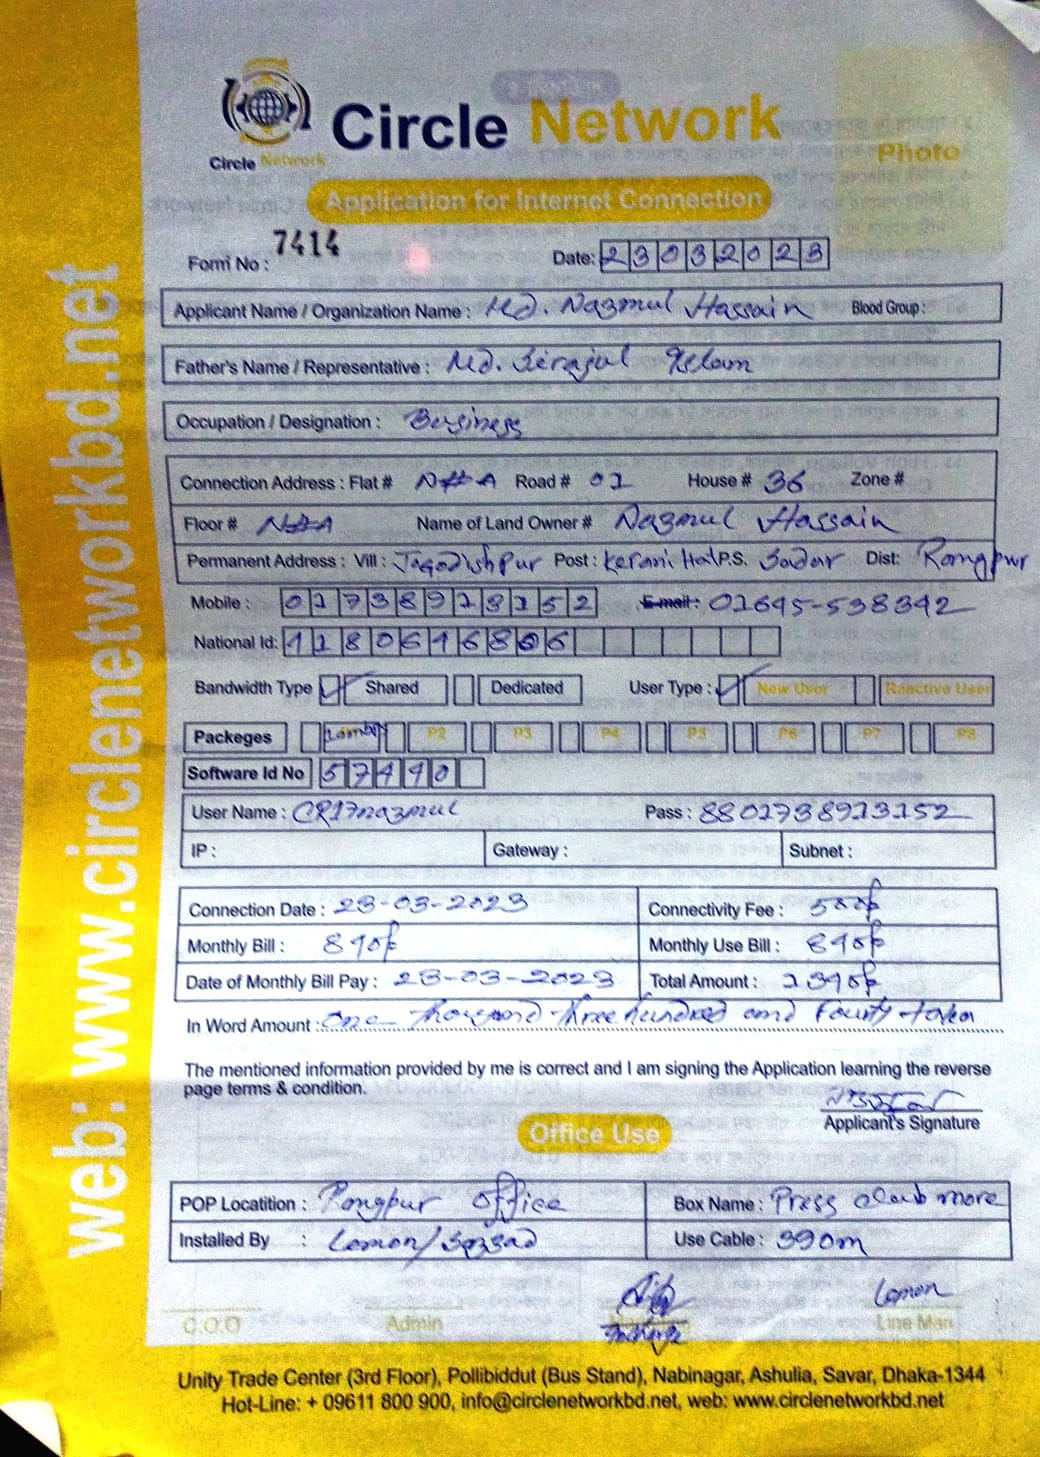 Circle Network
Circle Network
Photo
Application for Internet Connection
Form No : 7414
Date: 23032023
Applicant Name / Organization Name : Md. Nazmul Hassain Blood Group :
Father's Name / Representative : Md. Sirajul Islam
Occupation / Designation : Business
Connection Address : Flat # N/A Road # 01 House # 36 Zone #
Floor # N/A Name of Land Owner # Nazmul Hassain
Permanent Address : Vill : Jogodishpur Post : Kerani Hat P.S. Sadar Dist: Rongpur
Mobile : 01738913152 E-mail : 01645-538342
National Id: 1180616806
Bandwidth Type Shared Dedicated User Type : New User Reactive User
Packeges P2 P3 P4 P5 P6 P7 P8
Software Id No 57440
User Name : CR17nazmul Pass : 8801738913152
IP : Gateway : Subnet :
Connection Date : 23-03-2023 Connectivity Fee : 500/-
Monthly Bill : 840/- Monthly Use Bill : 840/-
Date of Monthly Bill Pay : 23-03-2023 Total Amount : 1340/-
In Word Amount : One thousand three hundred and Founty taken
The mentioned information provided by me is correct and I am signing the Application learning the reverse
page terms & condition.
Applicant's Signature
Office Use
POP Locatition : Rongpur office Box Name : Press clcub more
Installed By : Lemon/ Use Cable : 390m
Incharge Lemon
C.O.O Admin Line Man
Unity Trade Center (3rd Floor), Pollibiddut (Bus Stand), Nabinagar, Ashulia, Savar, Dhaka-1344
Hot-Line: + 09611 800 900, info@circlenetworkbd.net, web: www.circlenetworkbd.net
web: www.circlenetworkbd.net